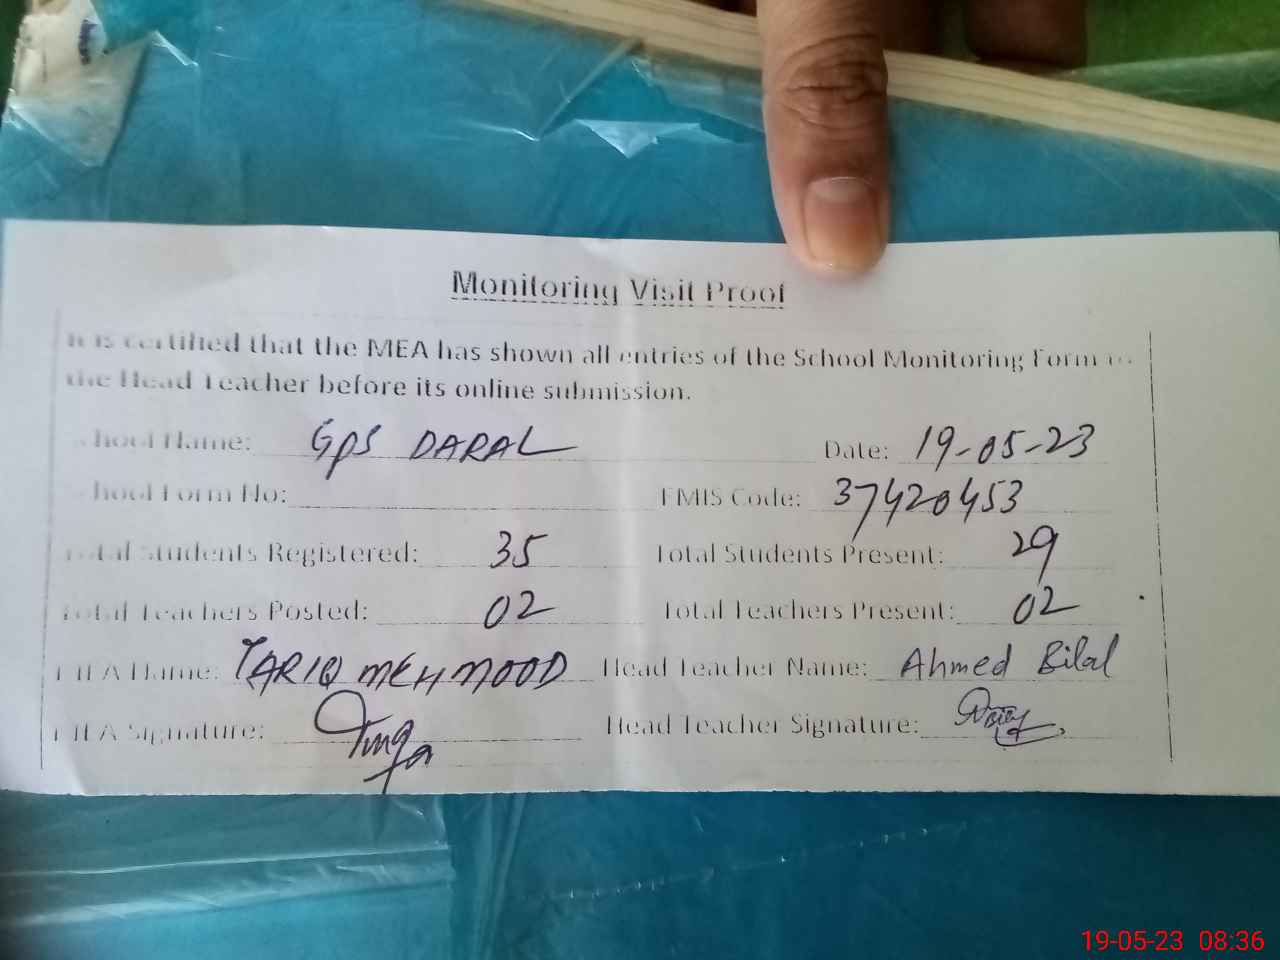 Monitoring Visit Proof
It is certified that the MEA has shown all entries of the School Monitoring Form to
the Head Teacher before its online submission.
School Name: GPS DARAL Date: 19-05-23
School Form No: EMIS Code: 37420453
Total Students Registered: 35 Total Students Present: 29
Total Teachers Posted: 02 Total Teachers Present: 02
MEA Name: TARIQ MEHMOOD Head Teacher Name: Ahmed Bilal
MEA Signature: Head Teacher Signature:
19-05-23 08:36